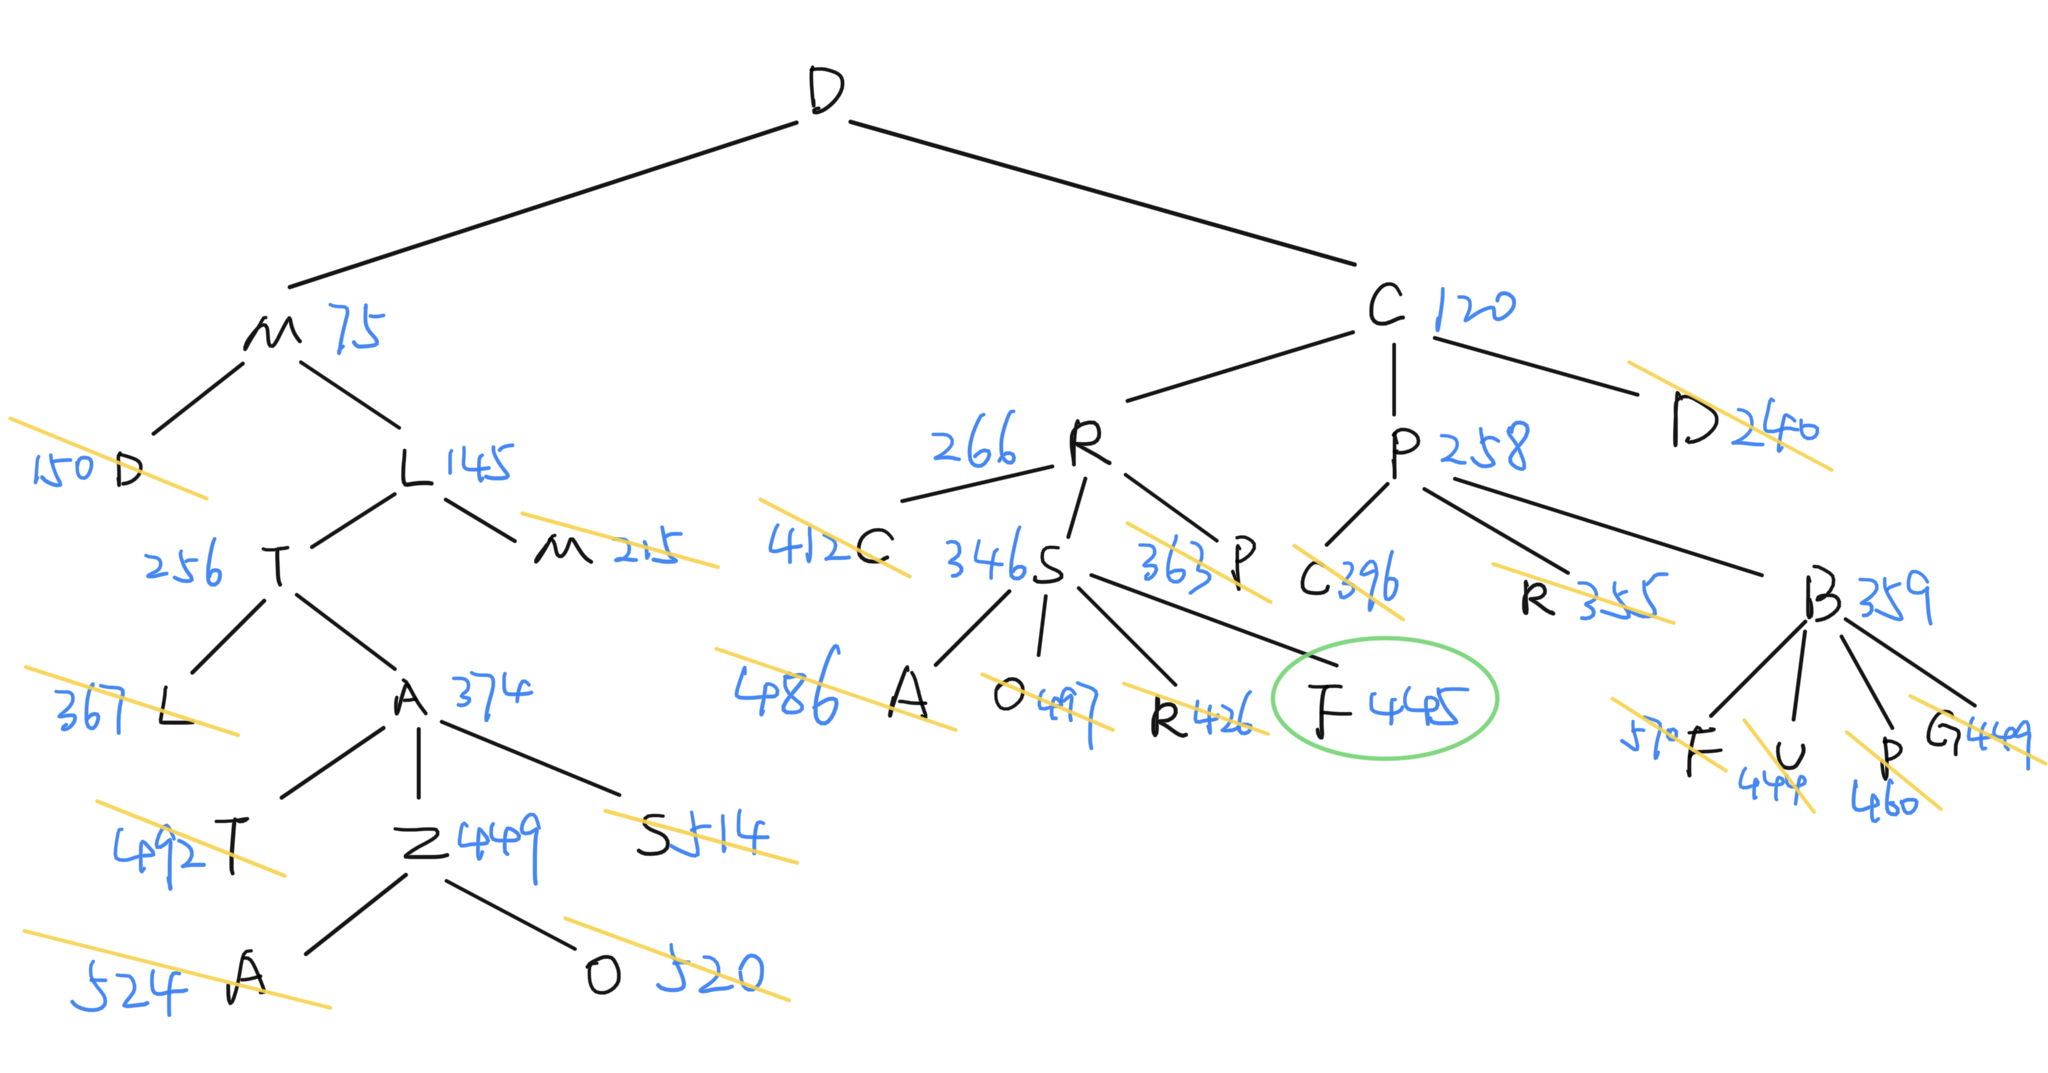 D
M 75
C 120
150 D
L 145
266 R
P 258
D 240
256 T
M 215
412 C
346 S
363 P
C 396
R 355
B 359
367 L
A 374
486 A
O 497
R 426
F 445
F
U 449
P 460
G 449
492 T
Z 449
S 514
524 A
O 520